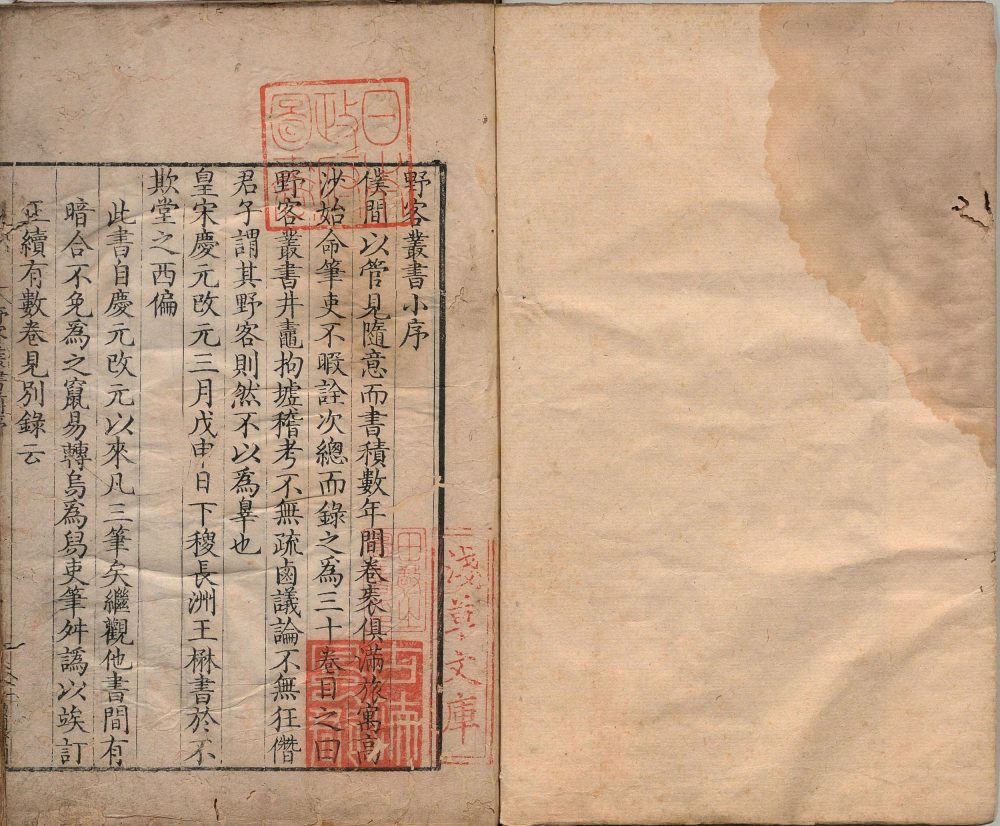 野客叢書小序
僕間以管見隨意而書積數年間卷袠俱滿旅寓高
沙始命筆吏不暇詮次總而錄之為三十卷目之曰
野客叢書井鼃拘墟稽考不無疏鹵議論不無狂僭
君子謂其野客則然不以為辠也
皇宋慶元改元三月戊申日下稷長洲王楙書於不
欺堂之西偏
此書自慶元改元以來凡三筆矣繼觀他書間有
暗合不免為之竄易轉烏為舃吏筆舛譌以竢訂
正續有數卷見別錄云
日本政府圖書
淺草文庫